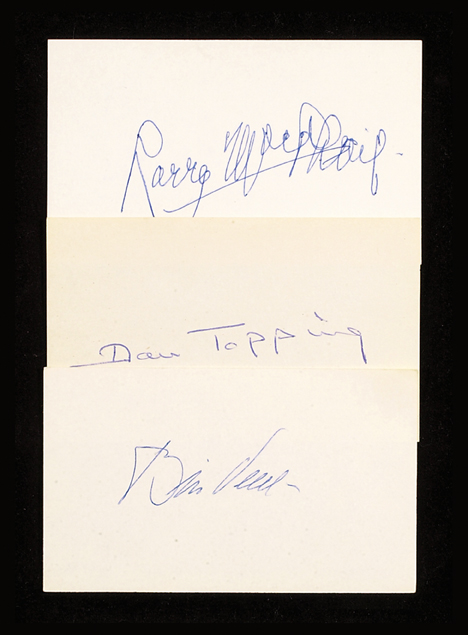 Larry MacPhail
Dan Topping
Bill Veeck